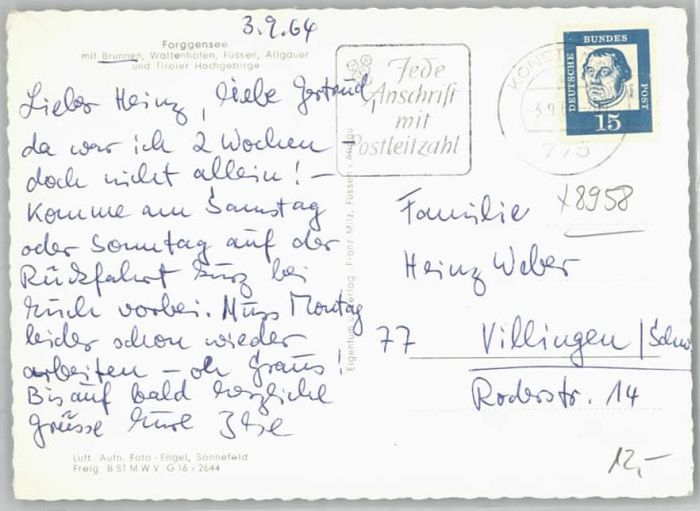 3.9.64
Forggensee
mit Brunnen, Waltenhofen, Füssen, Allgäuer
und Tiroler Hochgebirge
Lieber Heinz, liebe Gertrud,
da war ich 2 Wochen
doch nicht allein! –
Komme am Samstag
oder Sonntag auf der
Rückfahrt kurz bei
Euch vorbei. Muss Montag
leider schon wieder
arbeiten – oh Graus!
Bis auf bald herzliche
Grüsse Eure Ilse
Luft. Aufn. Foto-Engel, Sonnefeld
Freig. B ST M W V G 16 - 2644
Eigentum u. Verlag Franz Milz, Füssen - Allgäu
Jede
Anschrift
mit
Postleitzahl
KONST
3.9.
775
DEUTSCHE BUNDES POST
15
x8958
Familie
Heinz Weber
77 Villingen / Schw
Roderstr. 14
12,-